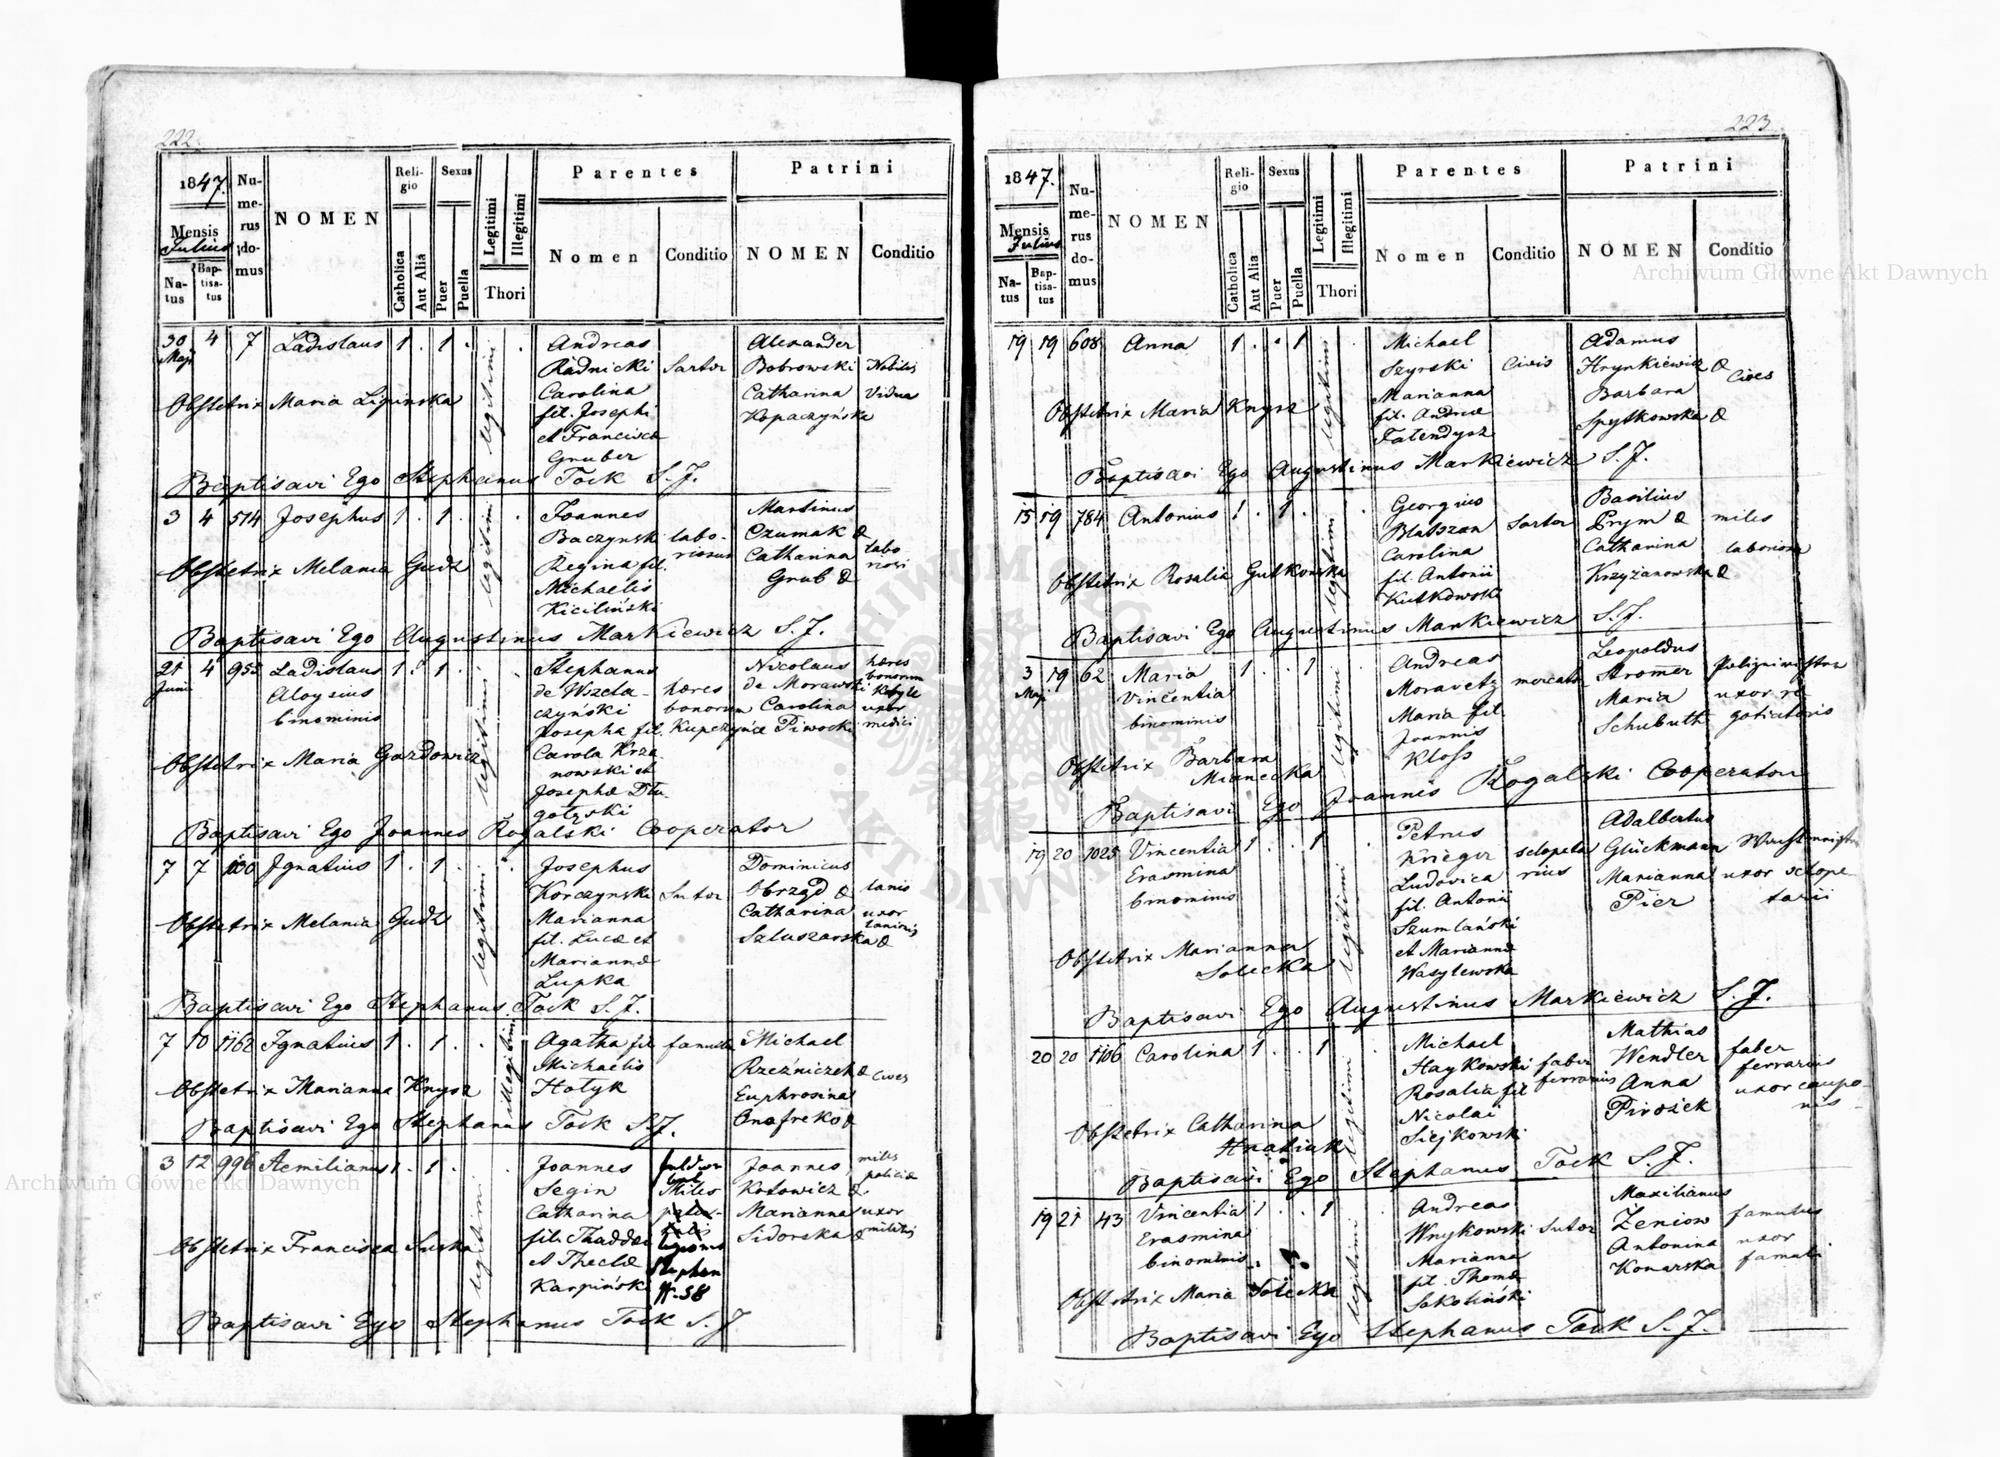 222.
1847.
Mensis
Julius
Natus
Baptisatus
Numerus domus
NOMEN
Religio
Catholica
Aut Alia
Sexus
Puer
Puella
Legitimi
Illegitimi
Thori
Parentes
Nomen
Conditio
Patrini
NOMEN
Conditio
30 4 7 Ladislaus 1 . 1 . legitimi . Andreas Alexander
Maji Radnicki Sartor Bobrowski Nobilis
Carolina Catharina Vidua
Obstetrix Maria Lipinska fil. Josephi Kopaczyńska
et Francisca
Gruber
Baptisavi Ego Stephanus Tock S. J.
3 4 514 Josephus 1 . 1 . legitimi . Joannes Martinus
Baczynsk labo- Czumak &
riosus Catharina labo
Obstetrix Melania Gudz Regina fil. Grub & riosi
Michaelis
Kiciliński
Baptisavi Ego Augustinus Markiewicz S. J.
21 4 953 Ladislaus 1 . 1 . legitimi . Stephanus Nicolaus hæres
Juni Aloysius de Wszela- hæres de Morawski bonorum
binominis czyński bonorum Carolina uxor
Josepha fil. Kupczyńce Piwocki medici
Obstetrix Maria Gazdowicz Carola Krza
nowski et
Josephæ Dłu
gołęski
Baptisavi Ego Joannes Rogalski Cooperator
7 7 130 Ignatius 1 . 1 . legitimi . Josephus Dominicus
Korczynski Sutor Obrząd & lanis
Obstetrix Melania Gudz Marianna Catharina uxor
fil. Lucæ et Szluszarska & lanionis
Mariannæ
Lupka
Baptisavi Ego Stephanus Tock S. J.
7 10 1162 Ignatius 1 . 1 . illegitimi Agatha fil famula Michael
Michaelis Rzeźniczek & cives
Obstetrix Marianna Knysz Hołyk Euphrosina
Onofreko &
Baptisavi Ego Stephanus Tock S. J.
3 12 996 Aemilianus 1 . 1 . legitimi . Joannes Joannes miles
Segin Miles Kotowicz & policiæ
Catharina Marianna uxor
Obstetrix Francisca Suska fil. Thaddæi legionis Sidorska & militis
et Theclæ Stephan
Karpiński N. 58
Baptisavi Ego Stephanus Tock S. J.
223
1847.
Mensis
Julius
Natus
Baptisatus
Numerus domus
NOMEN
Religio
Catholica
Aut Alia
Sexus
Puer
Puella
Legitimi
Illegitimi
Thori
Parentes
Nomen
Conditio
Patrini
NOMEN
Conditio
19 19 608 Anna 1 . . 1 legitimi . Michael Adamus
Szyrski Civis Hrynkiewicz &
Marianna Barbara cives
Obstetrix Maria Knysz fil. Andreæ Spytkowska &
Falendysz
Baptisavi Ego Augustinus Markiewicz S. J.
15 19 784 Antonius 1 . 1 . legitimi . Georgius Basilius
Blabszan Sartor Prym & miles
Carolina Catharina laboriosa
Obstetrix Rosalia Gutkowska fil. Antonii Krzyżanowska &
Kutkowski
Baptisavi Ego Augustinus Markiewicz S. J.
3 19 62 Maria 1 . . 1 legitimi . Andreas Leopoldus
Maji Vincentia Moravetz mercator Stromer
binominis Maria fil. Maria uxor ne
Joannis Schubuth gotiatoris
Obstetrix Barbara Kloss
Mianecka
Baptisavi Ego Joannis Rogalski Cooperator
19 20 1025 Vincentia 1 . . 1 legitimi . Petrus Adalbertus
Erasmina Krieger sclopeta Glückmann
binominis Ludovica rius Marianna uxor sclope
fil. Antonii Pier tarii
Szumlański
Obstetrix Marianna et Mariannæ
Solecka Wasylewska
Baptisavi Ego Augustinus Markiewicz S. J.
20 20 1106 Carolina 1 . . 1 legitimi . Michael Mathias
Haykowski faber Wendler faber
Rosalia fil ferrarius Anna ferrarius
Nicolai Pirożek uxor caupo-
Obstetrix Catharina Siejkowski nis
Hnatiuk
Baptisavi Ego Stephanus Tock S. J.
19 21 43 Vincentia 1 . . 1 legitimi . Andreas Maxilianus
Erasmina Wnykowski Sutor Zeniow famulus
binominis Marianna Antonina uxor
fil. Thomæ Konarska famuli
Obstetrix Maria Solecka Sokoliński
Baptisavi Ego Stephanus Tock S. J.
Archiwum Główne Akt Dawnych
Archiwum Główne Akt Dawnych
ARCHIWUM GŁÓWNE
AKT DAWNYCH